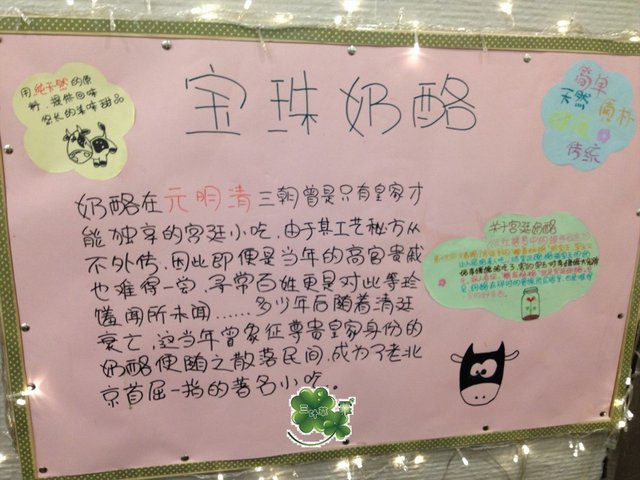 用纯天然的原
料,提供回味
悠长的美味甜品
宝珠奶酪
简单
天然
传统
奶酪在元明清三朝曾是只有皇家才
能独享的宫廷小吃,由于其工艺秘方从
不外传,因此即便是当年的高官贵戚
也难得一尝,寻常百姓更是对此等珍
馐闻所未闻……多少年后随着清廷
衰亡,这当年曾象征尊贵皇家身份的
奶酪便随之散落民间,成为了老北
京首屈一指的著名小吃..
关于宫廷奶酪
三叶草